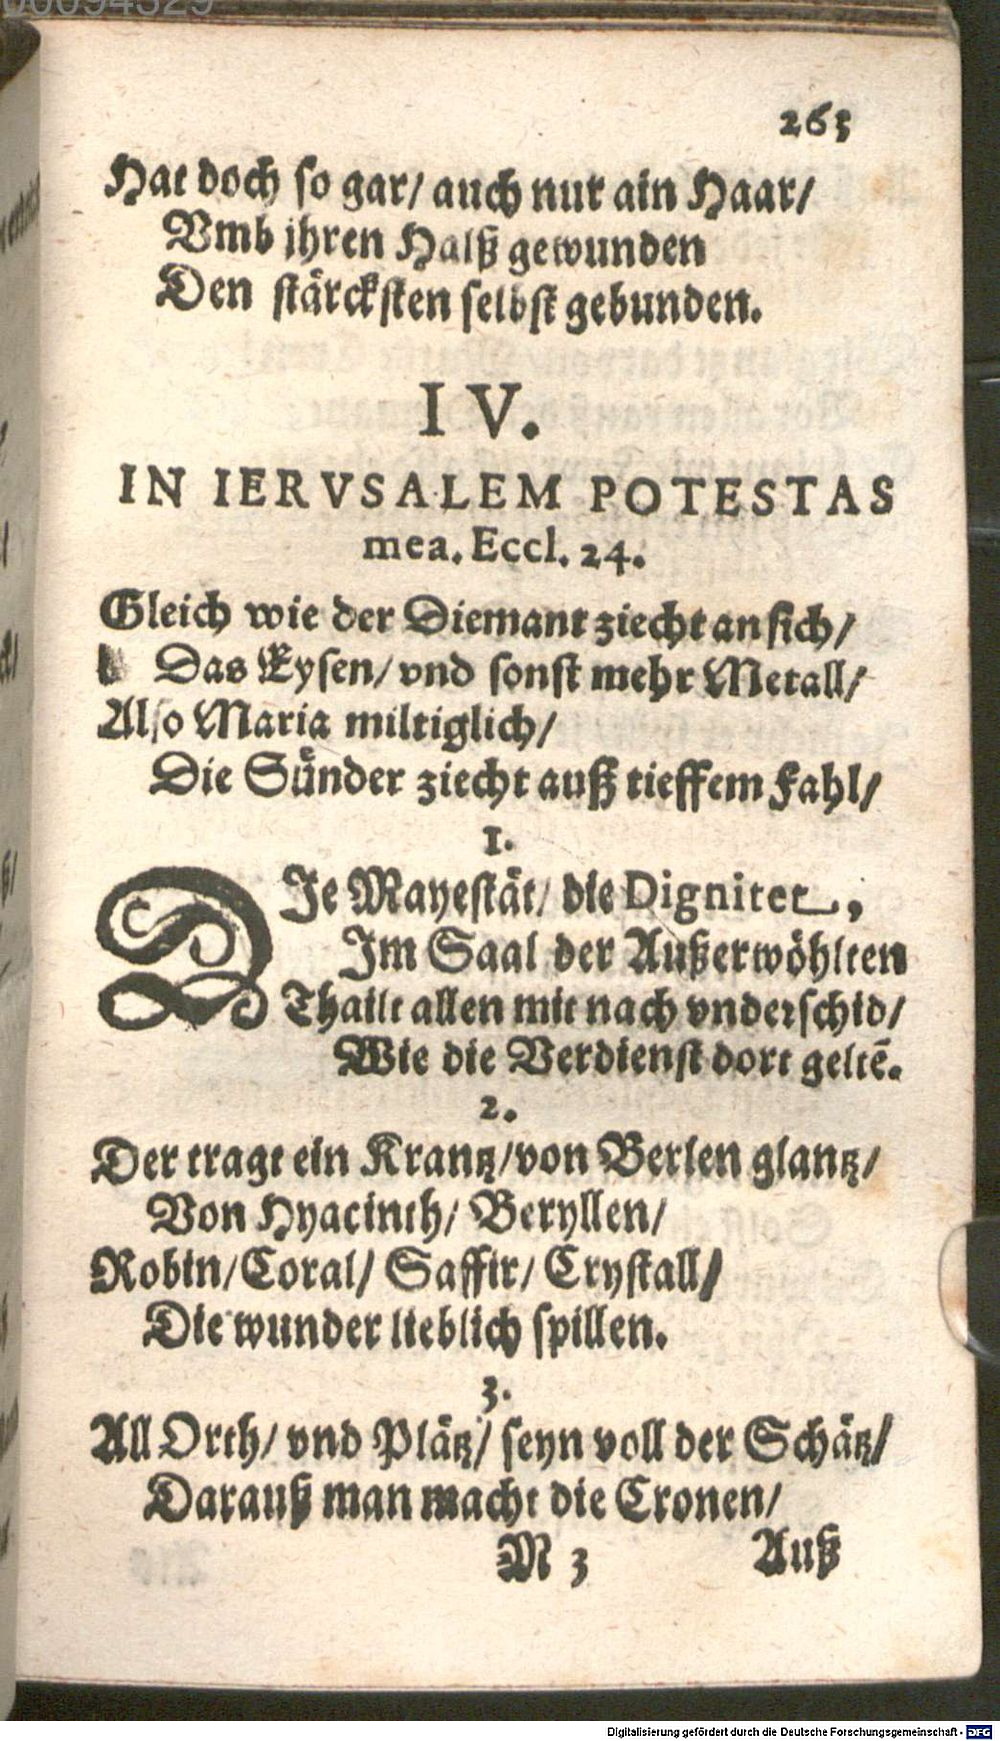 00094329
263
Hat doch so gar/ auch nur ain Haar/
Vmb ihren Halß gewunden
Den stärcksten selbst gebunden.
IV.
IN IERVSALEM POTESTAS
mea. Eccl. 24.
Gleich wie der Diemant ziecht an sich/
Das Eysen/ vnd sonst mehr Metall/
Also Maria miltiglich/
Die Sünder ziecht auß tieffem Fahl/
1.
DIe Mayestät/ die Dignitet,
Im Saal der Außerwöhlten
Thailt allen mit nach vnderschid/
Wie die Verdienst dort geltē.
2.
Der tragt ein Krantz/ von Berlen glantz/
Von Hyacinth/ Beryllen/
Robin/ Coral/ Saffir/ Crystall/
Die wunder lieblich spillen.
3.
All Orth/ vnd Plätz/ seyn voll der Schätz/
Darauß man macht die Cronen/
R 3 Auß
Digitalisierung gefördert durch die Deutsche Forschungsgemeinschaft - DFG